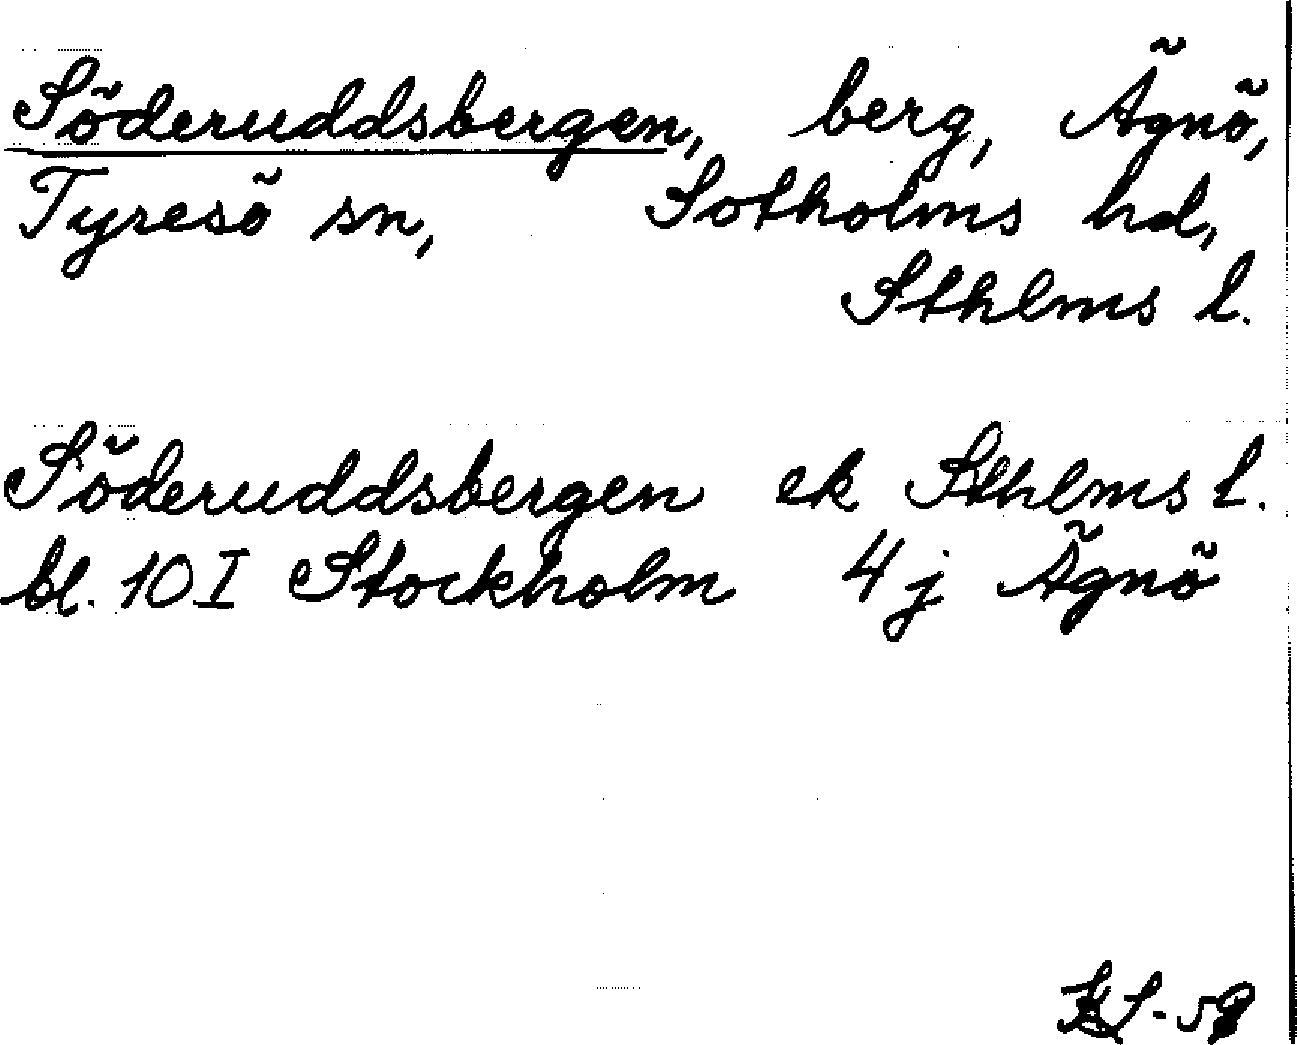 Söderuddsbergen, berg, Ägnö,
Tyresö sn, Sotholms hd,
Sthlms l.
Söderuddsbergen ek Sthlms l.
bl. 10 I Stockholm 4 j Ägnö